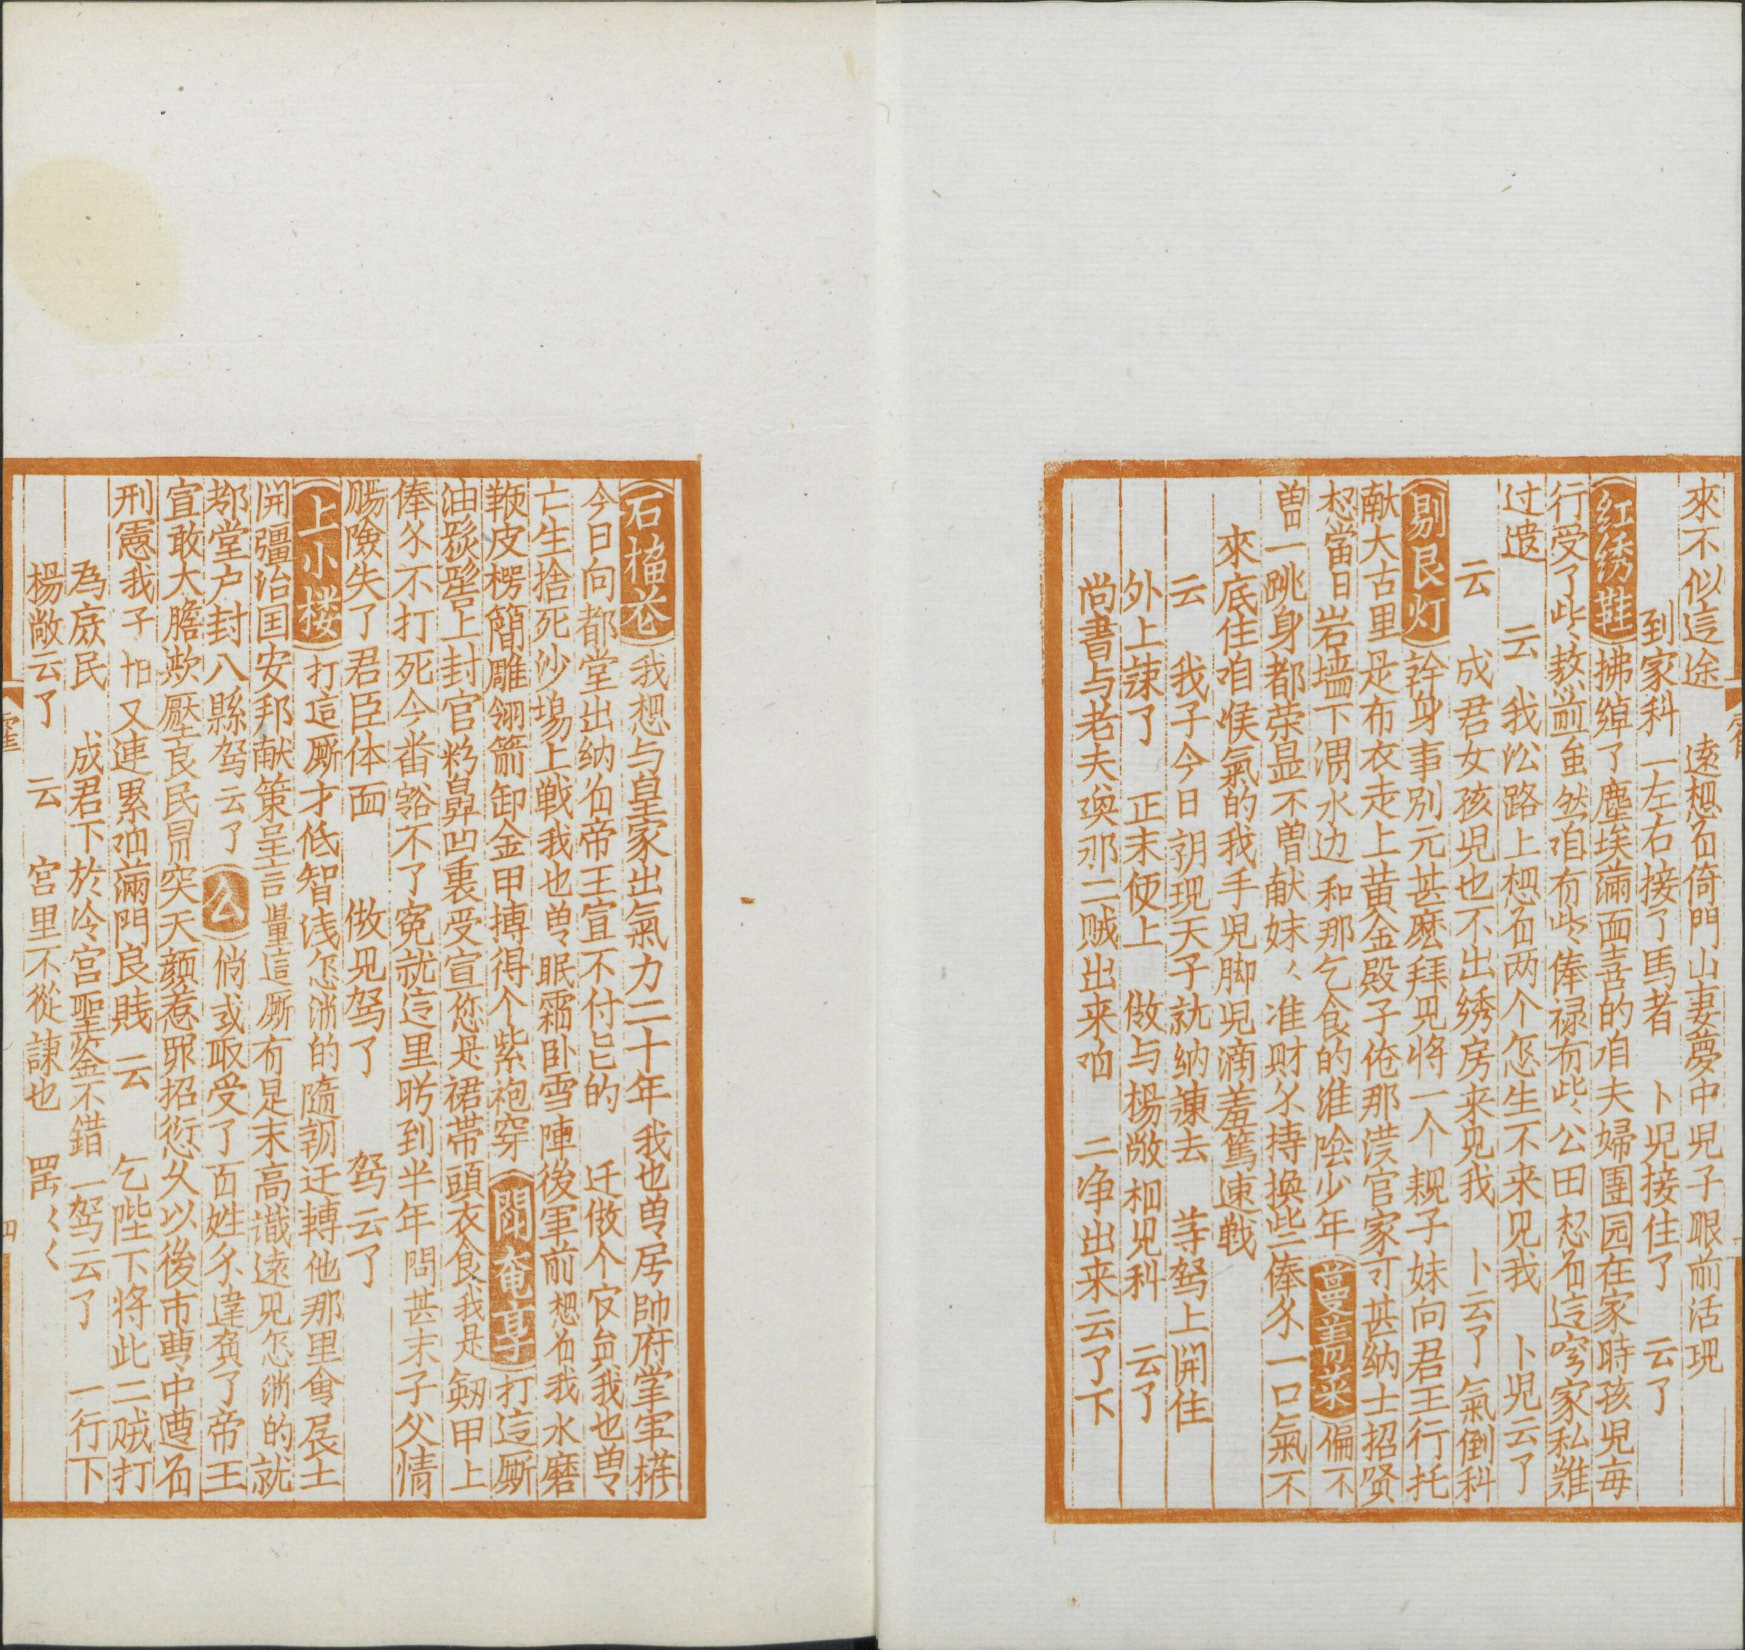 來不似這途　遠想着倚門山妻夢中児子眼前活現
到家科　一左右接了馬者　卜児接住了　云了
红绣鞋　拂綽了塵埃满面喜的咱夫婦團园在家時孩児每
行受了些々教誨虽然咱有些々俸禄有些々公田想着這穷家私难
过遣　云　我㳂路上想着两个怎生不来见我　卜児云了
云　成君女孩児也不出绣房来见我　卜云了氣倒科
剔艮灯　幹身事别元甚麽拜见将一个親子妹向君王行托
献大古里是布衣走上黄金殿子倦那漢官家可甚纳士招贤
想當日岩墙下渭水边和那乞食的淮陰少年　蔓菁菜　偏不
曽一跳身都荣显不曽献妹々准财㐱持換些俸㐱一口氣不
來底住咱喉氣的我手児脚児滴羞篤速戰
云　我子今日朝现天子就纳諫去　等驾上開住
外上諌了　正末便上　做与楊敞相见科　云了
尚書与老夫奂那二贼出来咱　二净出来云了下
石榴花　我想与皇家出氣力二十年我也曽居帥府掌军權
今日向都堂出纳着帝王宣不付旨的　迁做个官員我也曽
亡生捨死沙場上戰我也曽眠霜卧雪陣後軍前想着我水磨
鞭皮楞簡雕翎箭卸金甲搏得个紫袍穿　閗奄享　打這厮
油髮髻上封官粉鼻凹裏受宣您是裙帶頭衣食我是劒甲上
俸㐱不打死今番豁不了寃就這里盻到半年間甚末子父情
腸險失了君臣体面　做见驾了　驾云了
上小楼　打這厮才低智浅怎消的隨朝迁轉他那里會展土
開疆治国安邦献策呈言量這厮有是末高識遠见怎消的就
都堂户封八縣驾云了　么　倘或取受了百姓㐱違背了帝王
宣敢大膽欺壓良民冒突天颜惹罪招愆久以後市曹中遭着
刑憲我子怕又連累咱滿門良賎　云　乞陛下将此二贼打
為庶民　成君下於冷宫聖鉴不錯　一驾云了　一行下
楊敞云了　云　宫里不從諌也　罢々々
四